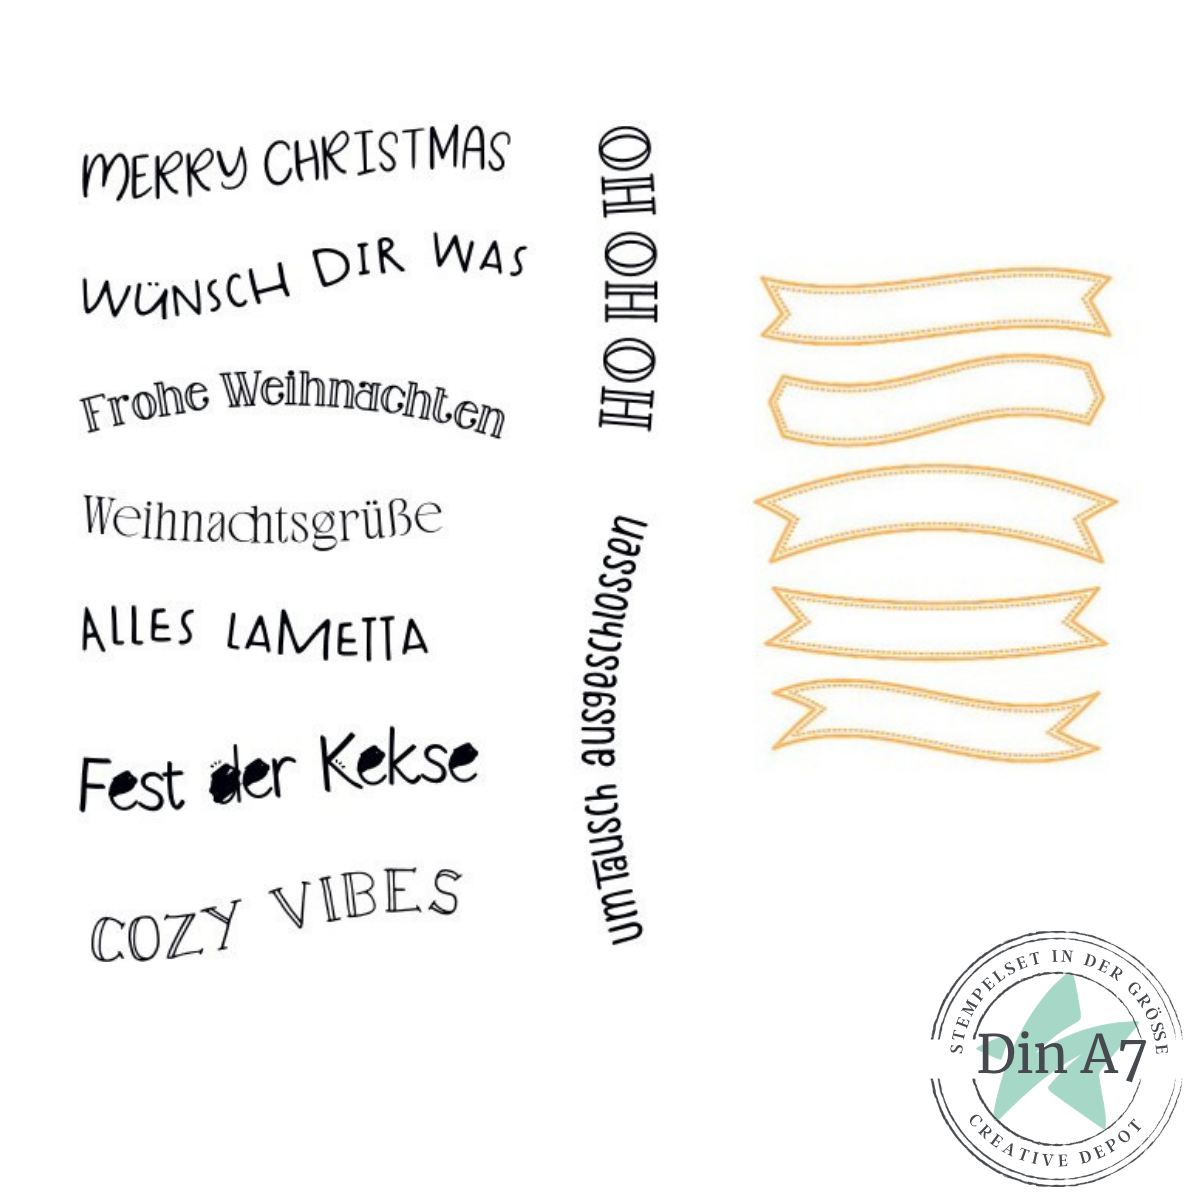 MERRY CHRISTMAS
WÜNSCH DIR WAS
Frohe Weihnachten
Weihnachtsgrüße
ALLES LAMETTA
Fest der Kekse
COZY VIBES
HO HO HO
um Tausch ausgeschlossen
STEMPELSET IN DER GRÖSSE
Din A7
CREATIVE DEPOT